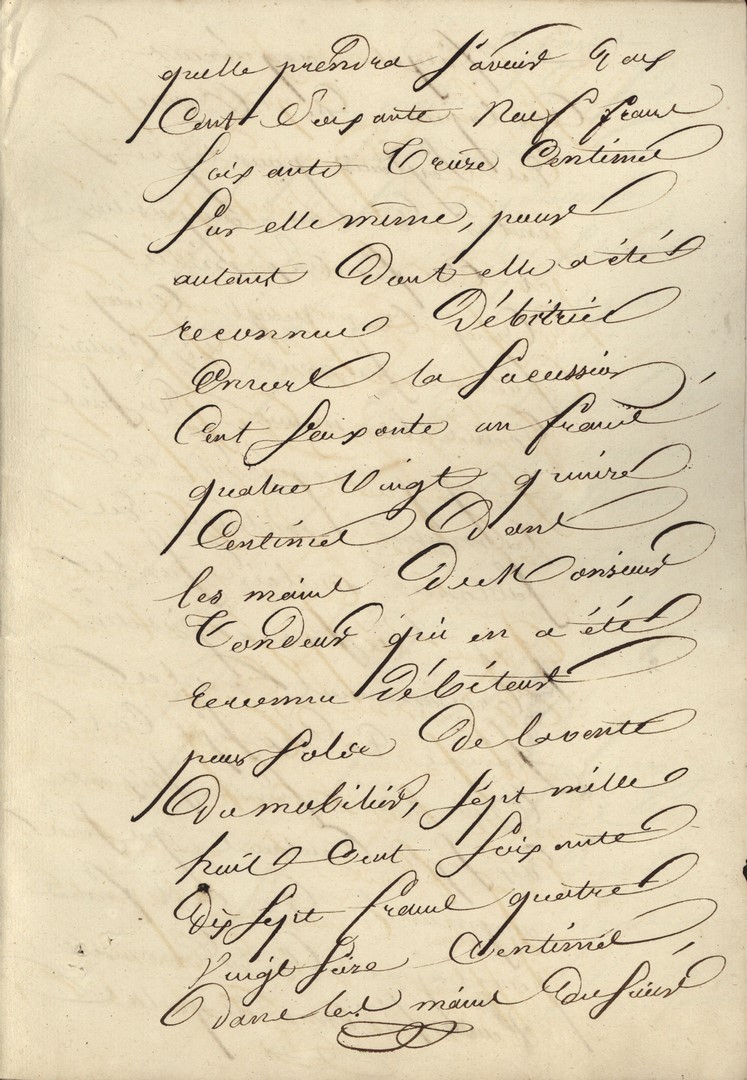 quelle prendra Savoir
Cent Soixante Neuf francs
Soixante Treize Centimes
Sur elle même, pour
autant Dont elle a été
reconnue Débitrice
Envers la Sucession
Cent Soixante un francs
quatre Vingt quinze
Centimes Dans
les mains De Monsieur
Tondeur qui en a été
reconnu Débiteur
pour Solde De la vente
Du mobilier, Sept mille
huit Cent Soixante
Dix Sept francs quatre
Vingt Seize Centimes
Dans les mains Du Sieur